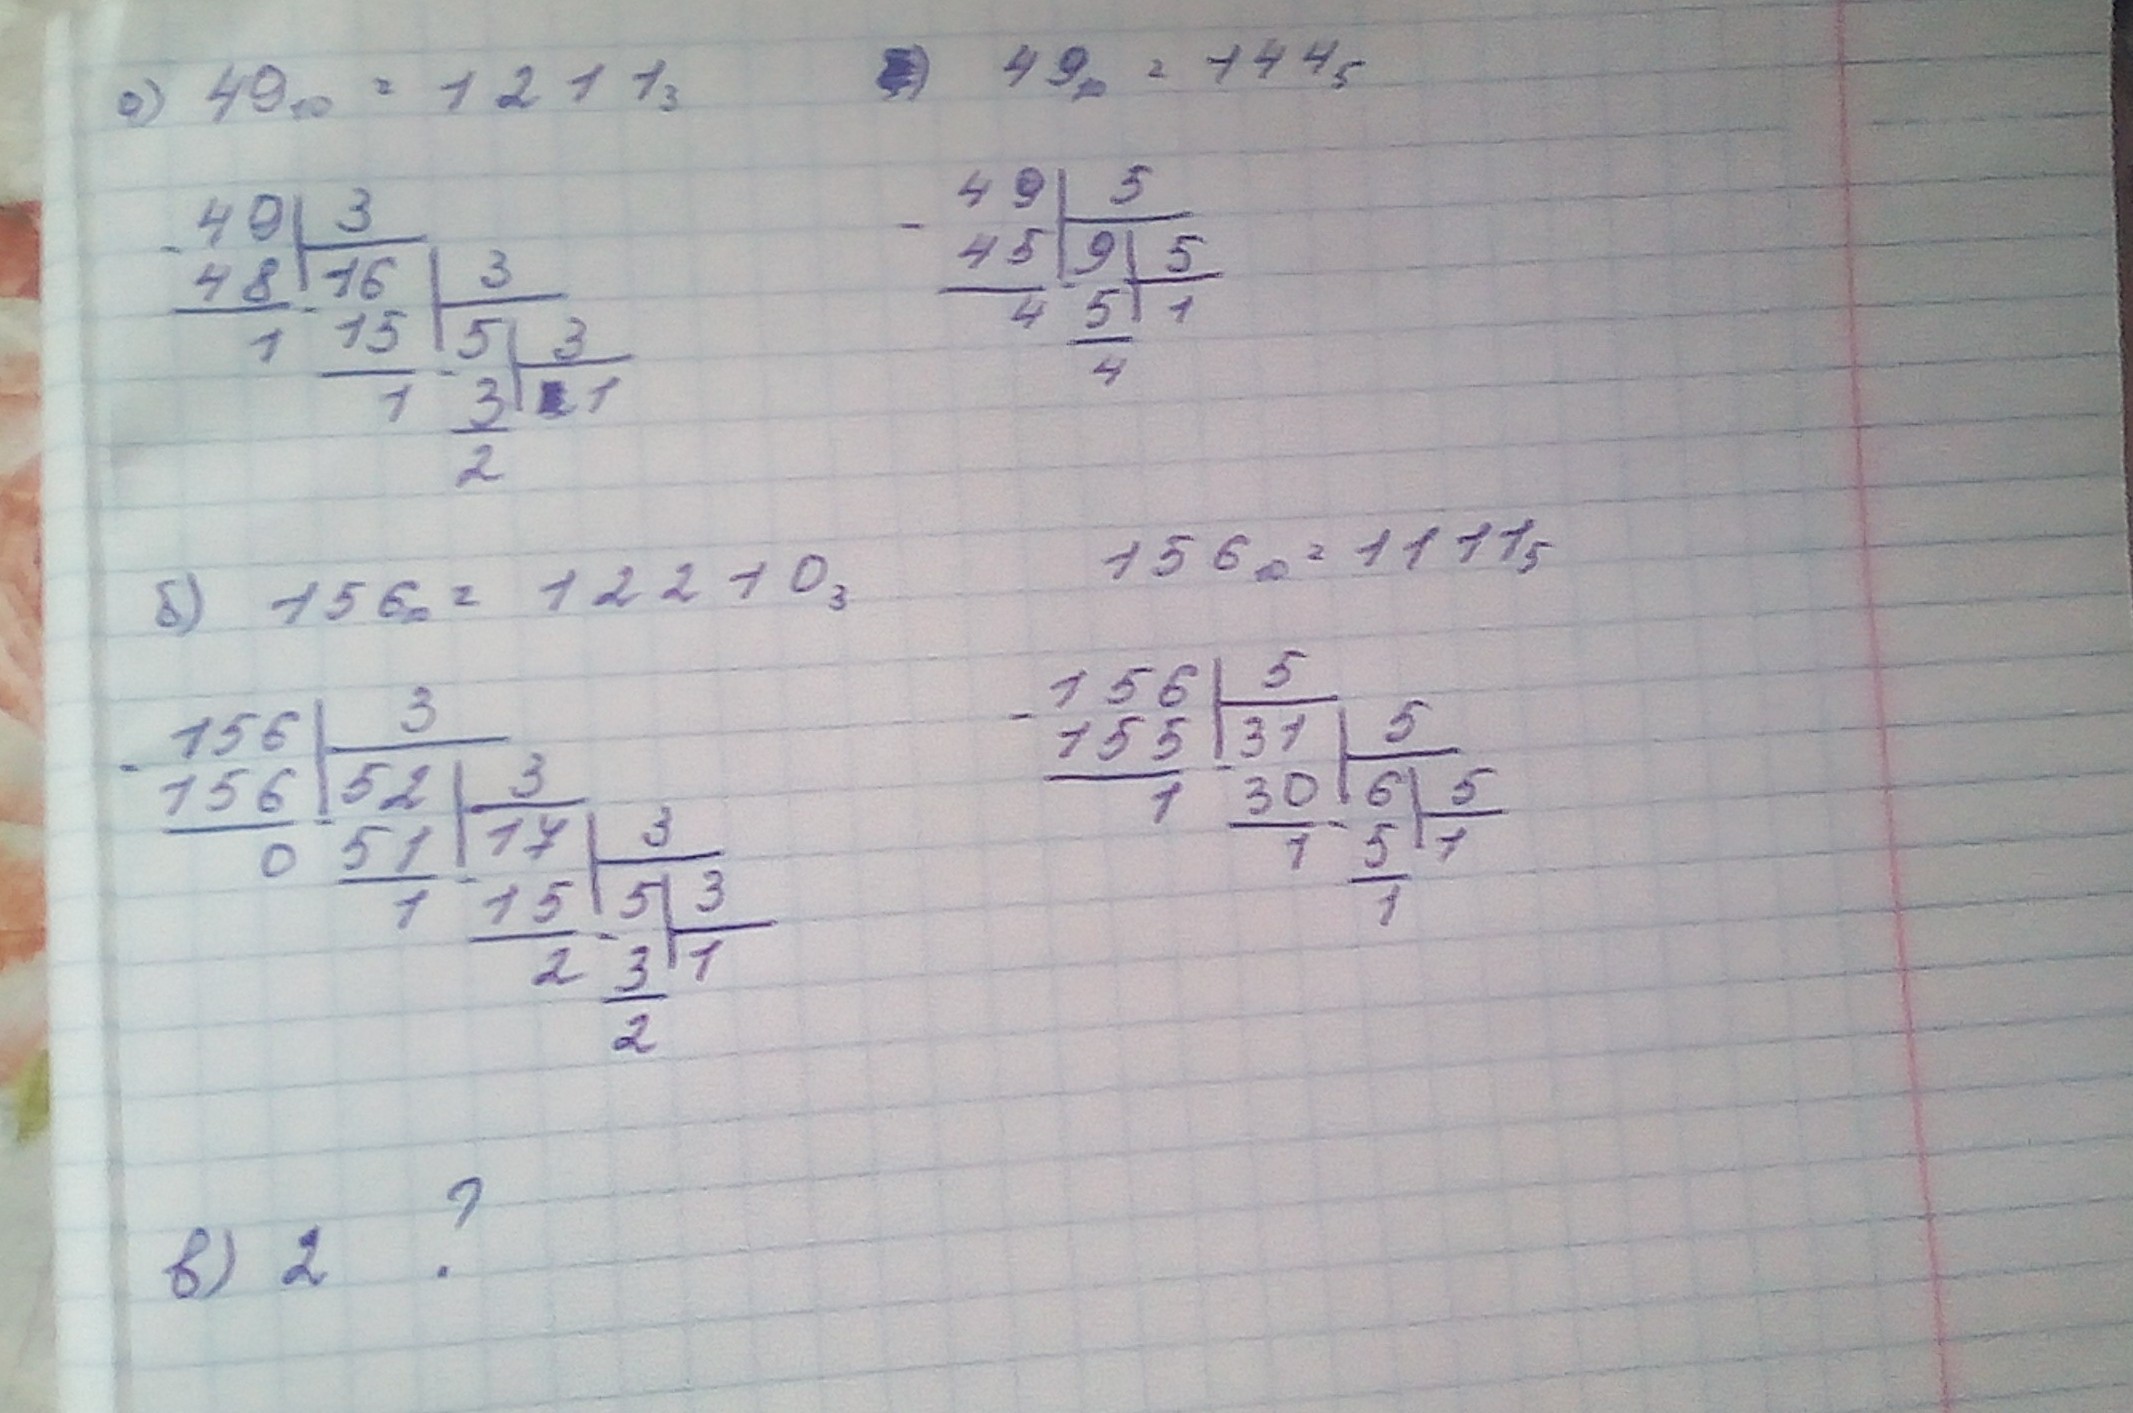 а) 49₁₀ = 1211₃
49₁₀ = 144₅
- 49 | 3
48 | 16 | 3
1 - 15 | 5 | 3
1 - 3 | 1
2
- 49 | 5
45 | 9 | 5
4 - 5 | 1
4
б) 156₁₀ = 12210₃
156₁₀ = 1111₅
- 156 | 3
156 | 52 | 3
0 - 51 | 17 | 3
1 - 15 | 5 | 3
2 - 3 | 1
2
- 156 | 5
155 | 31 | 5
1 - 30 | 6 | 5
1 - 5 | 1
1
в) 2 ?